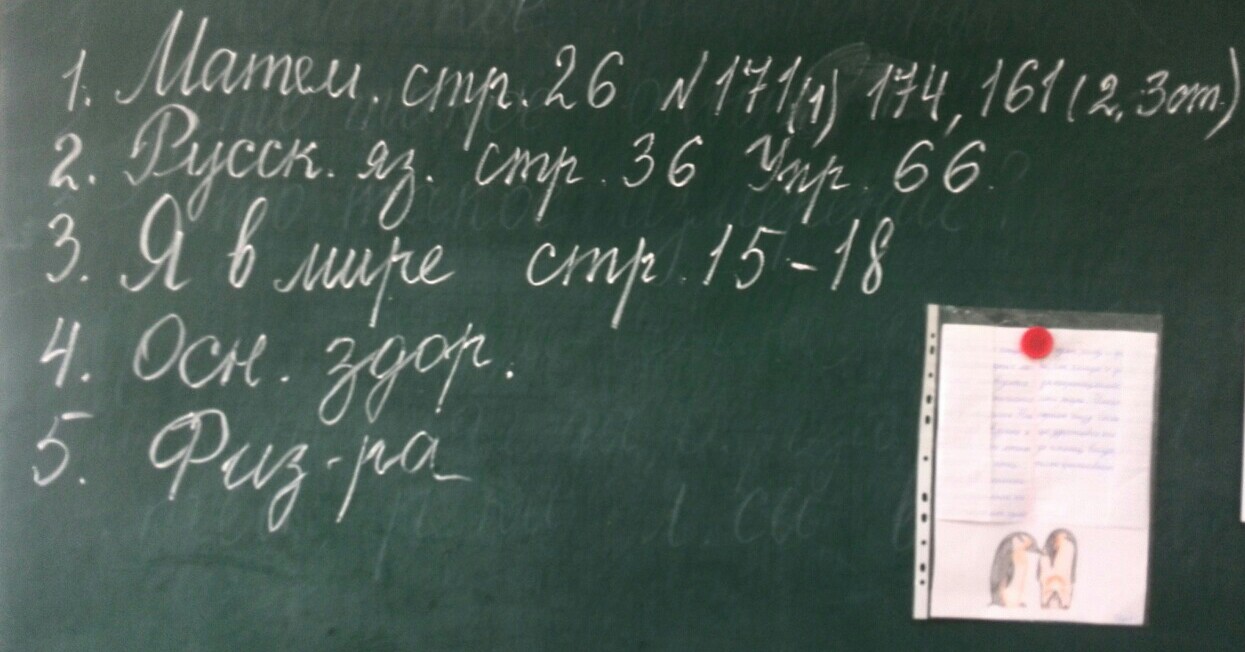 1. Матем. стр. 26 № 171(1) 174, 161 (2, 3 ст.)
2. Русск. яз. стр. 36 Упр. 66.
3. Я в мире стр. 15-18
4. Осн. здор.
5. Физ-ра